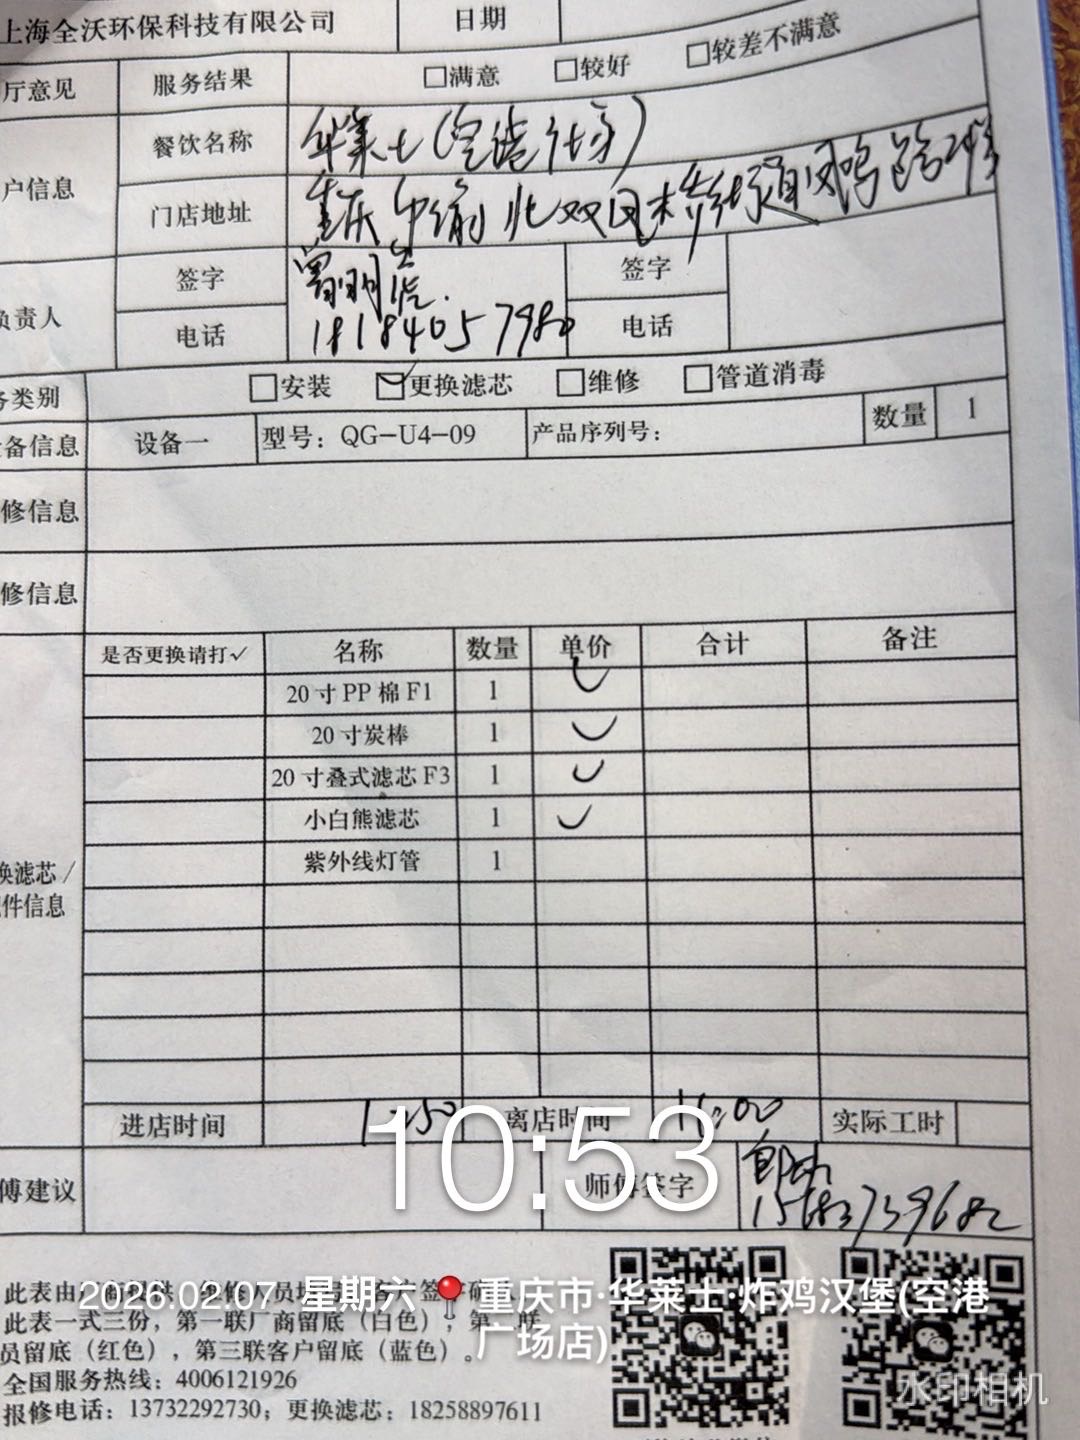 上海全沃环保科技有限公司 日期
厅意见 服务结果 □满意 □较好 □较差不满意
户信息 餐饮名称 华莱士(空港社房)
门店地址 重庆市渝北双凤桥街道凤鸣路
负责人 签字 签字
电话 18184057980 电话
务类别 □安装 ☑更换滤芯 □维修 □管道消毒
备信息 设备一 型号：QG-U4-09 产品序列号： 数量 1
修信息
修信息
是否更换请打✓ 名称 数量 单价 合计 备注
20寸PP棉F1 1 ✓
20寸炭棒 1 ✓
20寸叠式滤芯F3 1 ✓
小白熊滤芯 1 ✓
紫外线灯管 1
换滤芯/
件信息
进店时间 离店时间 实际工时
10:53
傅建议 师傅签字
15683739682
此表由
2026.02.07 星期六 重庆市·华莱士·炸鸡汉堡(空港
广场店)
此表一式三份，第一联厂商留底（白色），第二联
员留底（红色），第三联客户留底（蓝色）。
全国服务热线：4006121926
报修电话：13732292730；更换滤芯：18258897611
水印相机